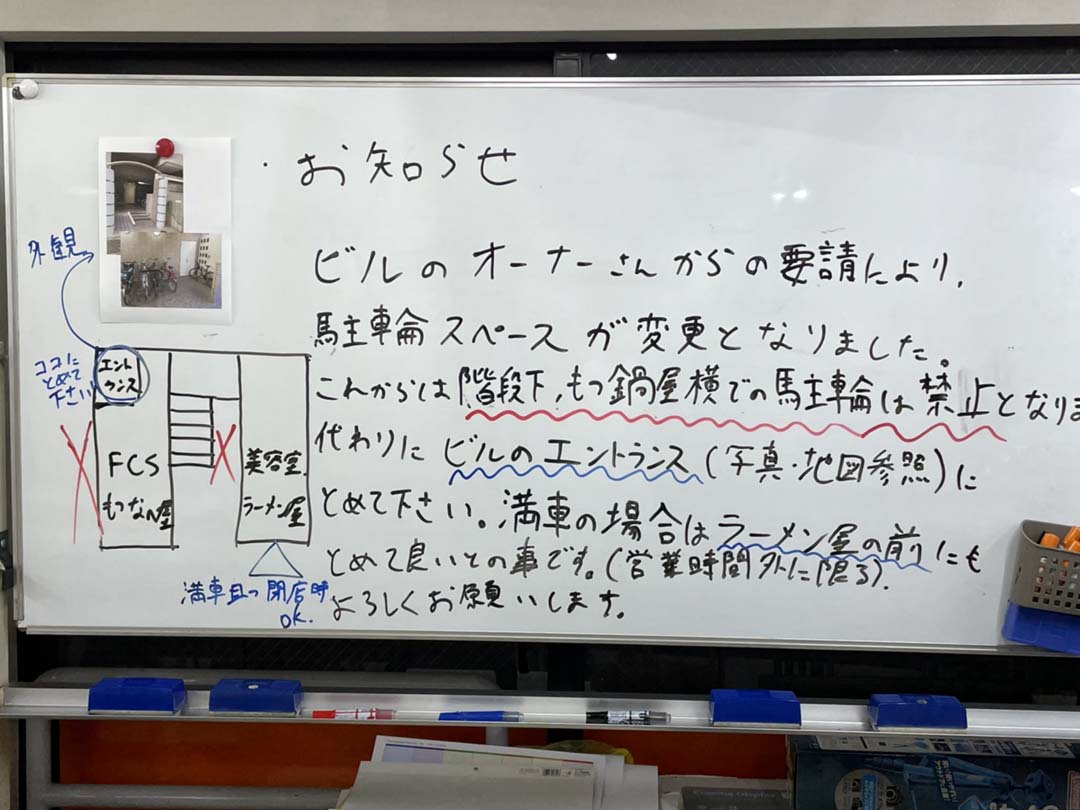 ・お知らせ
ビルのオーナーさんからの要請により、
駐車輪スペースが変更となりました。
これからは階段下、もつ鍋屋横での駐輪は禁止となりま
代わりにビルのエントランス(写真・地図参照)に
とめて下さい。満車の場合はラーメン屋の前にも
とめて良いとの事です。(営業時間外に限る).
よろしくお願いします。
外観
ココに
とめて
下さい
エント
ランス
FCS
もつなべ屋
美容室
ラーメン屋
満車且つ閉店時
OK.